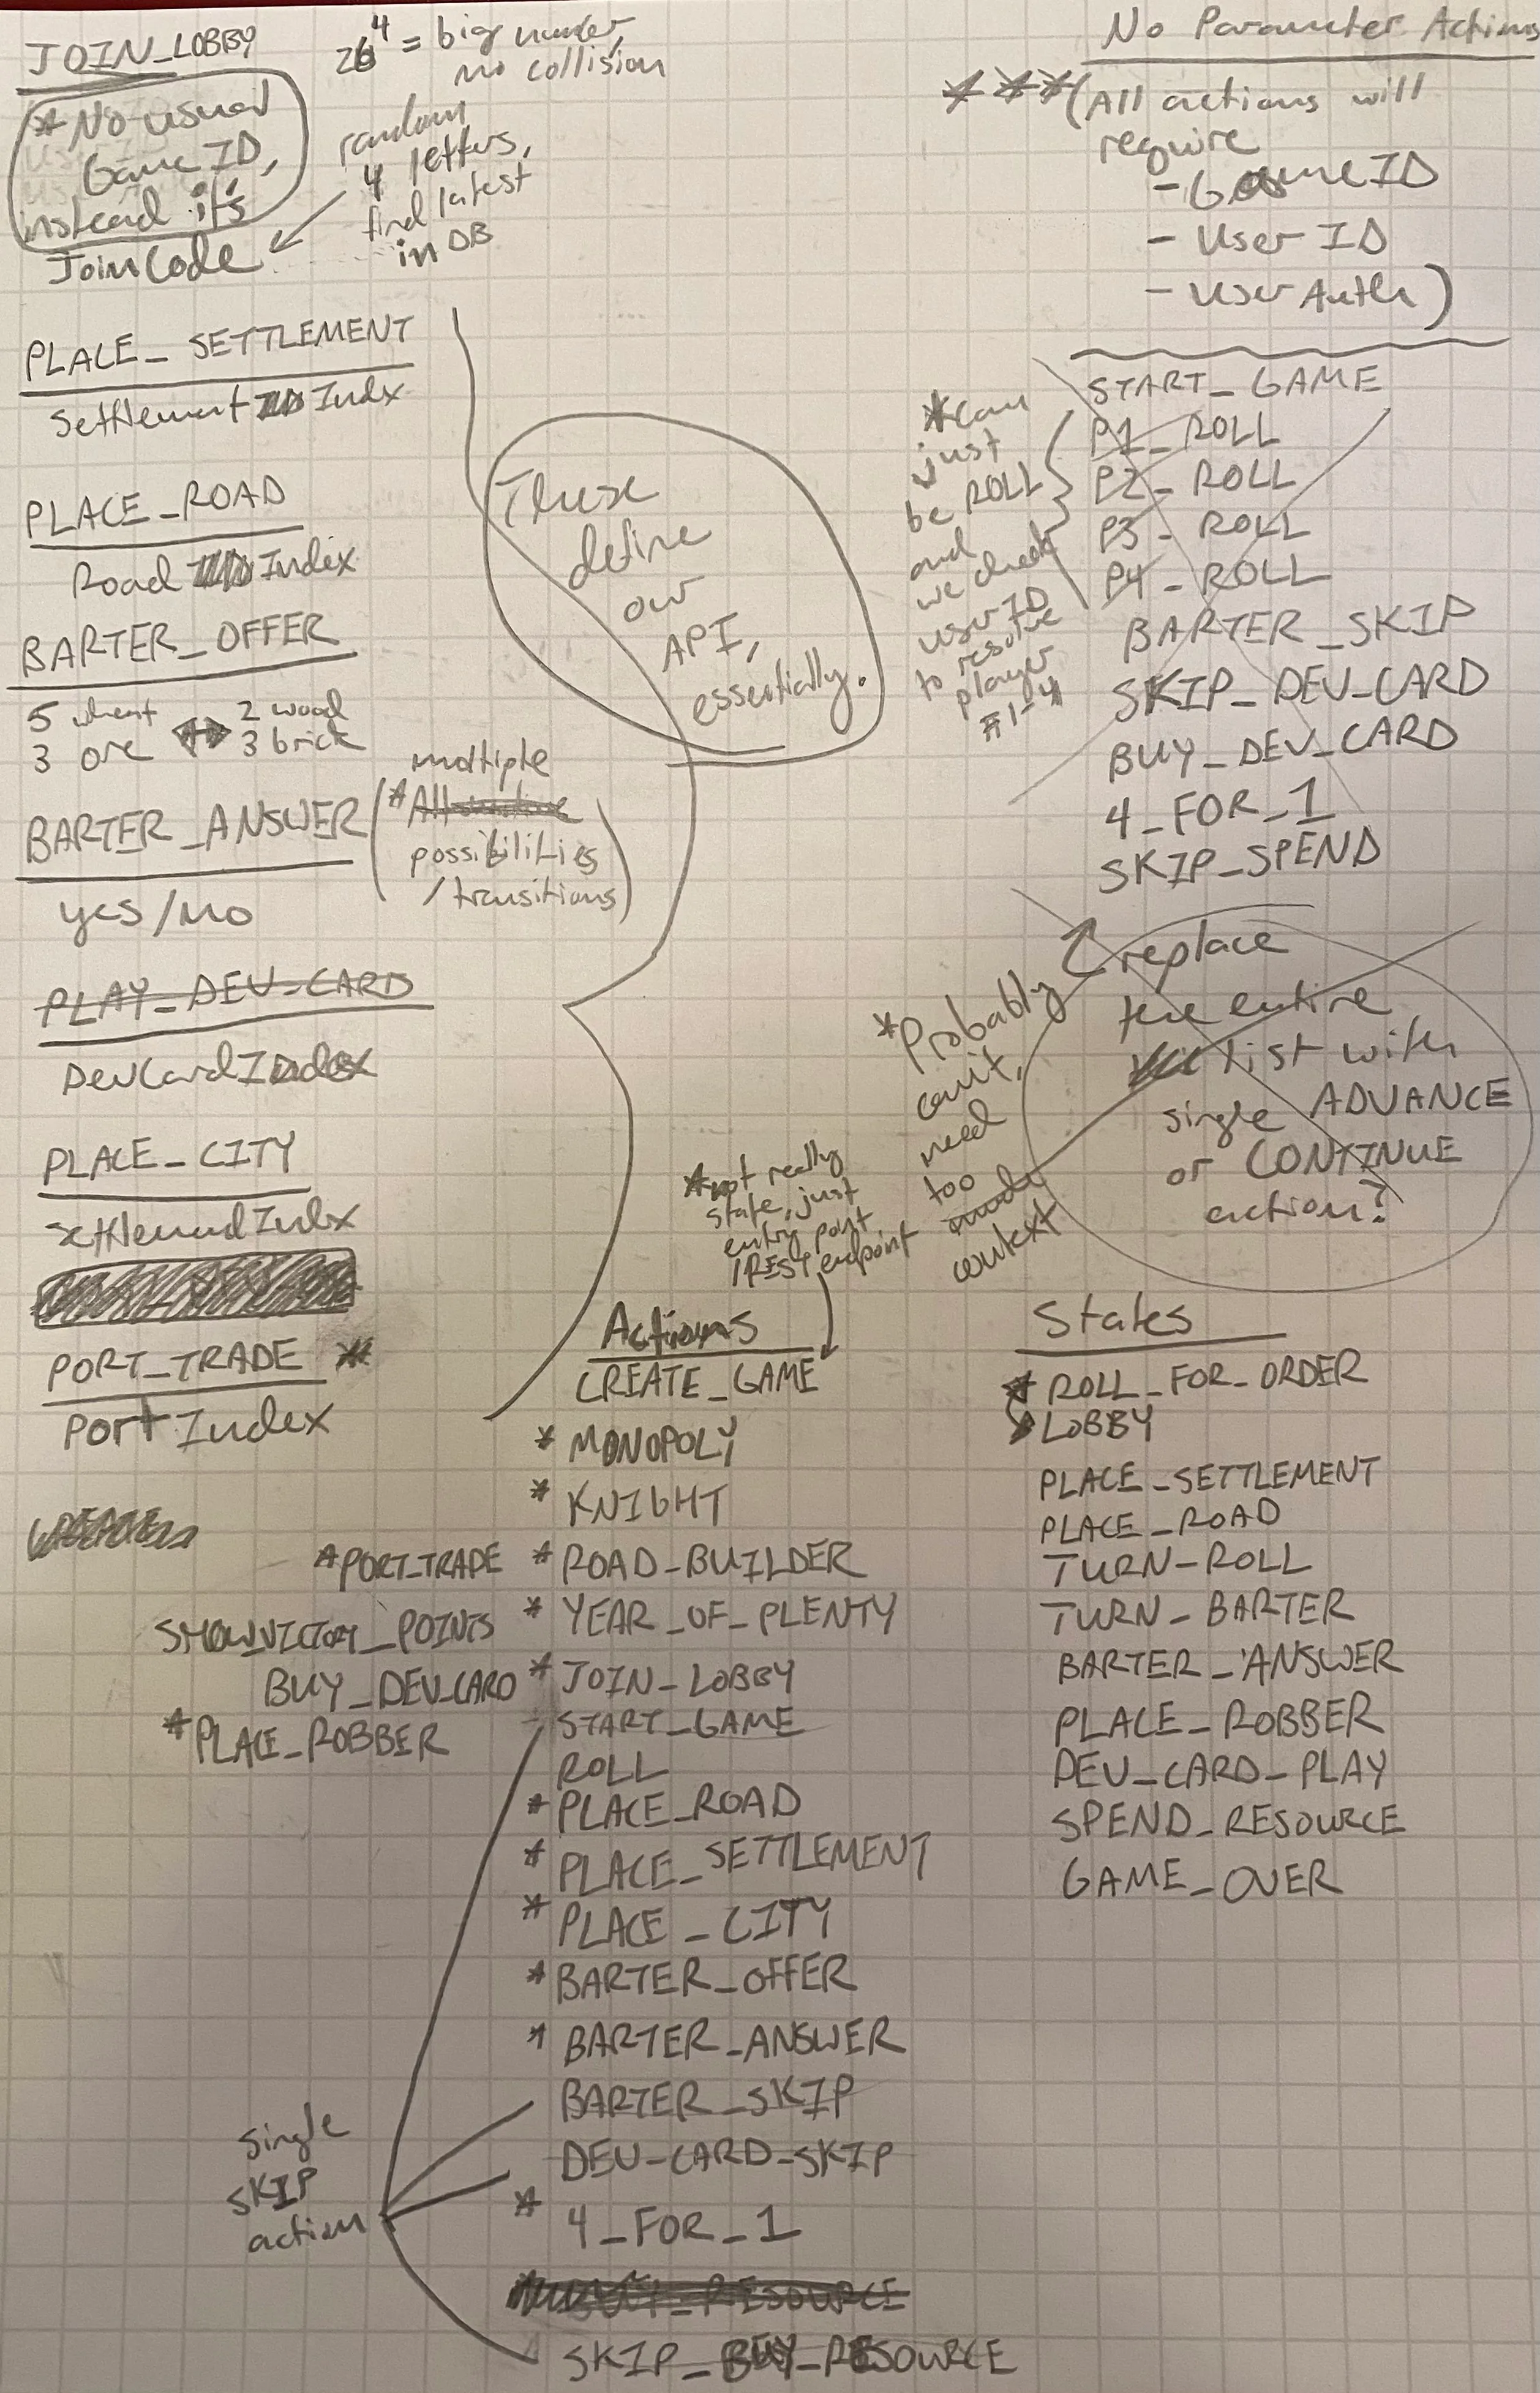 JOIN_LOBBY
*No usual
Game ID,
instead it's
JoinCode
26^4 = big number,
no collision
random
4 letters,
find latest
in DB
PLACE_SETTLEMENT
Settlement Indx
PLACE_ROAD
Road Index
BARTER_OFFER
5 wheat ↔ 2 wood
3 ore 3 brick
BARTER_ANSWER
yes/no
multiple
(*All
possibilities
/transitions)
PLAY_DEV_CARD
DevCardIndex
PLACE_CITY
settlementIndx
PORT_TRADE *
PortIndex
These
define
our
API,
essentially.
No Parameter Actions
***(All actions will
require
- GameID
- User ID
- User Auth)
START_GAME
P1_ROLL
P2_ROLL
P3_ROLL
P4_ROLL
BARTER_SKIP
SKIP_DEV_CARD
BUY_DEV_CARD
4_FOR_1
SKIP_SPEND
*can
just
be ROLL
and
we check
user ID
to resolve
player
#1-4
replace
the entire
list with
single ADVANCE
or CONTINUE
action?
*Probably
can't,
need
too
much
context
*not really
state, just
entry point
/REST endpoint
Actions
CREATE_GAME
* MONOPOLY
* KNIGHT
* ROAD-BUILDER
* YEAR_OF_PLENTY
* JOIN_LOBBY
START_GAME
ROLL
* PLACE_ROAD
* PLACE_SETTLEMENT
* PLACE_CITY
* BARTER_OFFER
* BARTER_ANSWER
BARTER_SKIP
DEV-CARD-SKIP
* 4_FOR_1
SKIP_BUY_RESOURCE
*PORT_TRADE
SHOW_VICTORY_POINTS
BUY_DEV_CARD
*PLACE_ROBBER
single
SKIP
action
States
* ROLL_FOR_ORDER
LOBBY
PLACE_SETTLEMENT
PLACE_ROAD
TURN-ROLL
TURN_BARTER
BARTER_ANSWER
PLACE_ROBBER
DEV_CARD_PLAY
SPEND_RESOURCE
GAME_OVER